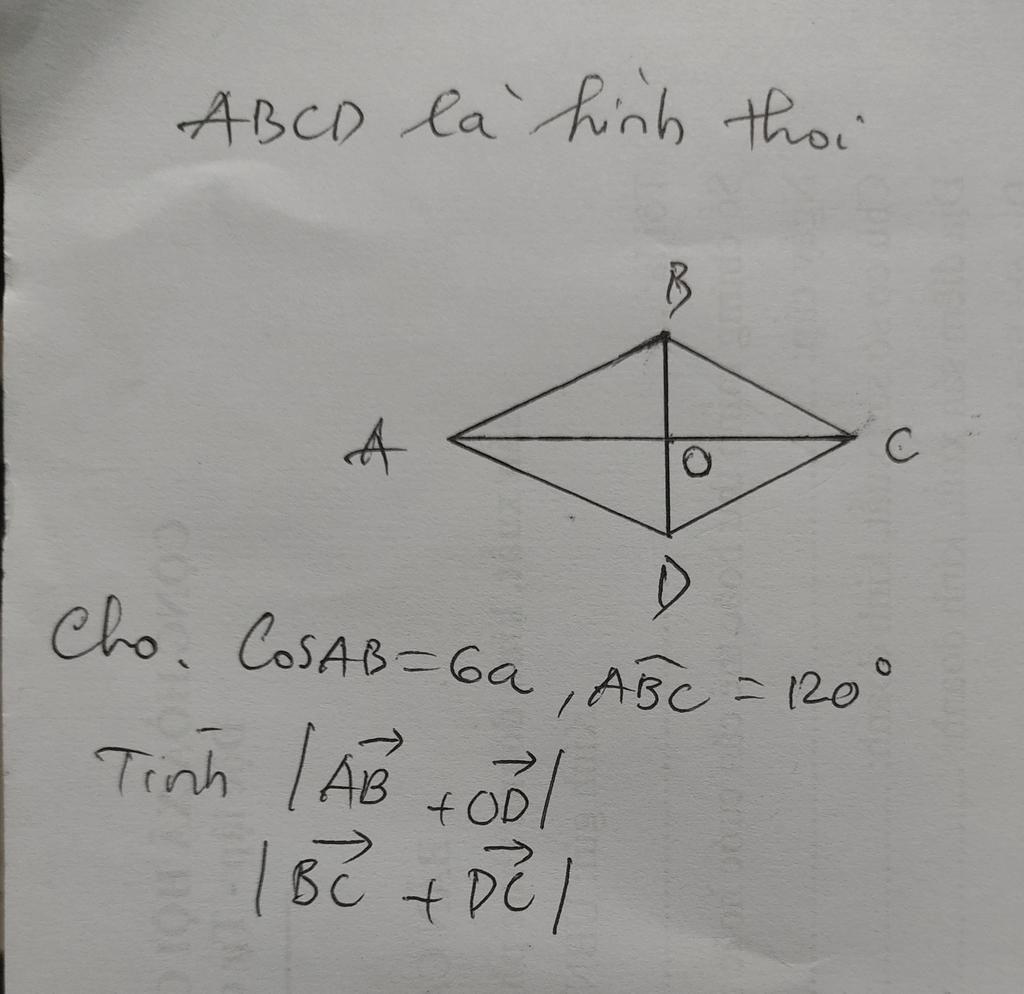 ABCD là hình thoi
B
A
O
C
D
Cho. CosAB = 6a, ABC̑ = 120°
Tính |AB⃗ + OD⃗|
|BC⃗ + DC⃗|